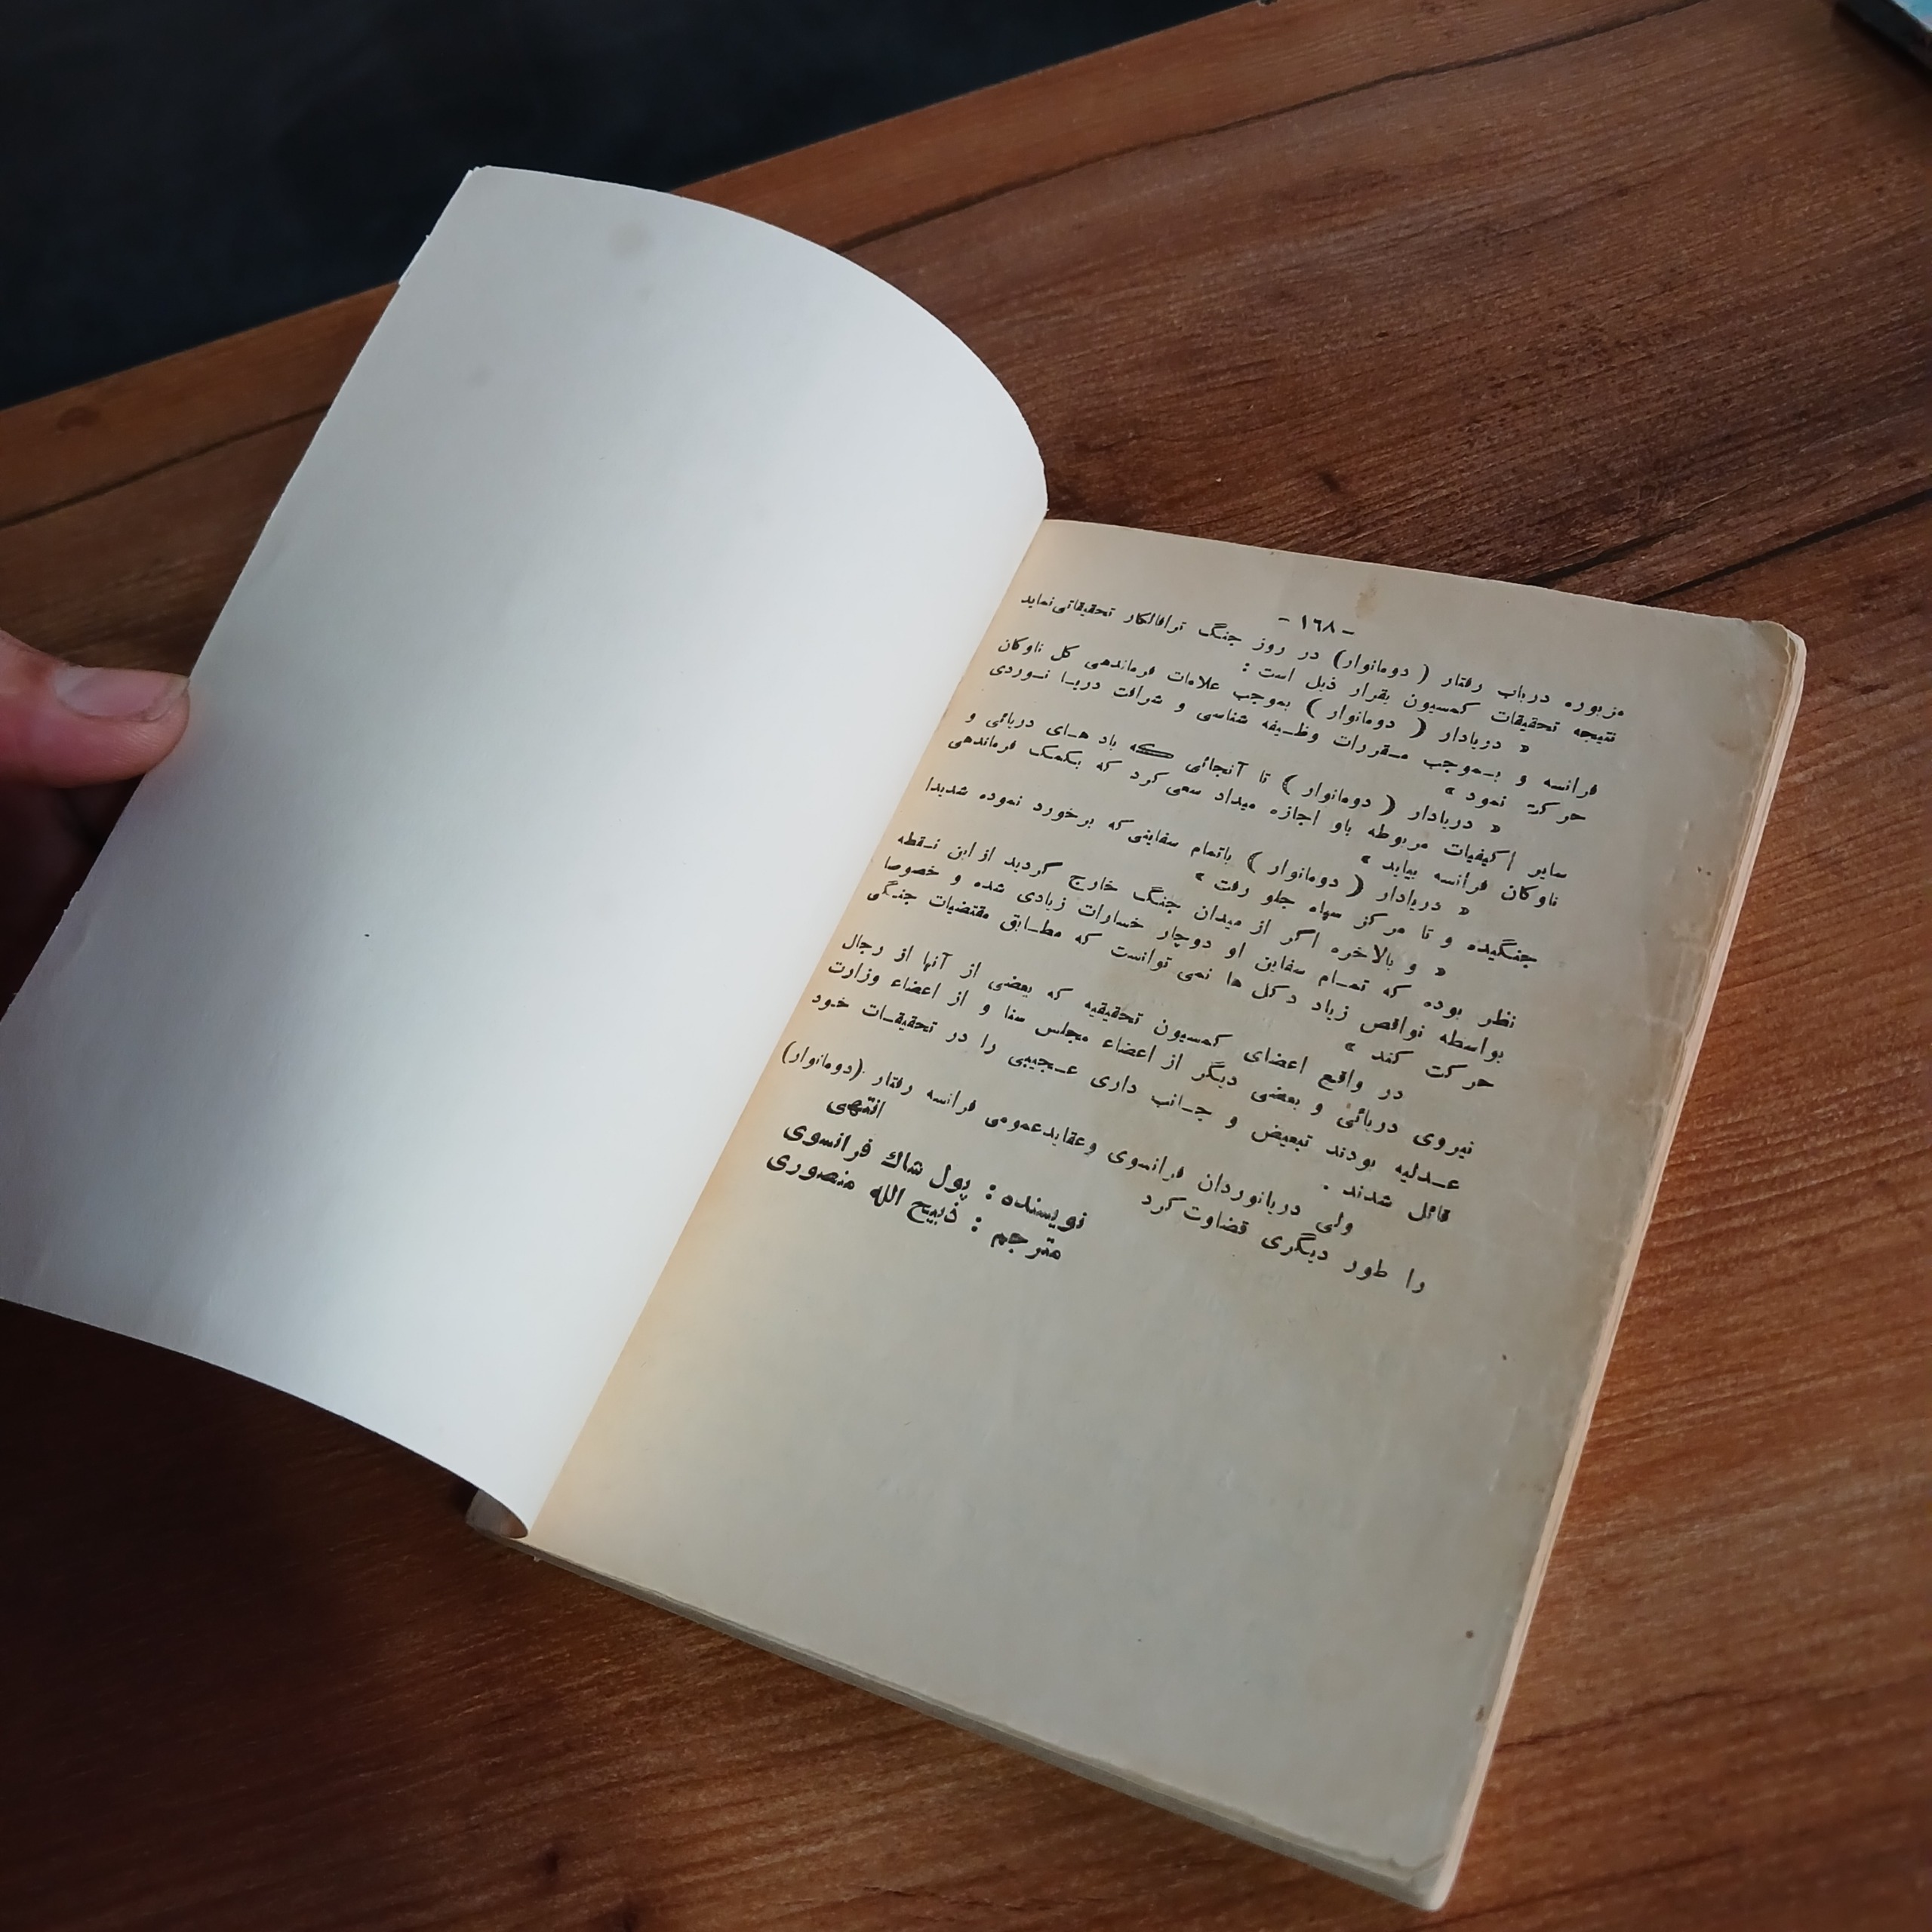 - ١٦٨ -
مزبوره درباب رفتار ( دومانوار) در روز جنگ ترافالگار تحقیقاتی‌نماید
نتیجه تحقیقات کمسیون بقرار ذیل است :
« دریادار ( دومانوار ) بموجب علامات فرماندهی کل ناوکان
فرانسه و بـموجب مـقررات وظـیفه شناسی و شرافت دریـا نـوردی
حرکت نمود »
« دریادار ( دومانوار ) تا آنجائی که باد هـای دریائی و
سایر کیفیات مربوطه باو اجازه میداد سعی کرد که بکمک فرماندهی
ناوکان فرانسه بیاید »
« دریادار ( دومانوار ) باتمام سفاینی‌که برخورد نموده شدیدا
جنگیده و تا مرکز سپاه جلو رفت »
« و بالاخره اگر از میدان جنگ خارج گردید از این نـقطه
نظر بوده که تمـام سفاین او دوچار خسارات زیادی شده و خصوصا
بواسطه نواقص زیاد دکل ها نمی توانست که مطـابق مقتضیات جنگی
حرکت کند »
در واقع اعضای کمسیون تحقیقیه که بعضی از آنها از رجال
نیروی دریائی و بعضی دیگر از اعضاء مجلس سنا و از اعضاء وزارت
عـدلیه بودند تبعیض و جـانب داری عـجیبی را در تحقیقـات خـود
قائل شدند .
ولی دریانوردان فرانسوی وعقایدعمومی فرانسه رفتار (دومانوار)
را طور دیگری قضاوت کرد
انتهی
نویسنده : پول شاك فرانسوی
مترجم : ذبیح الله منصوری